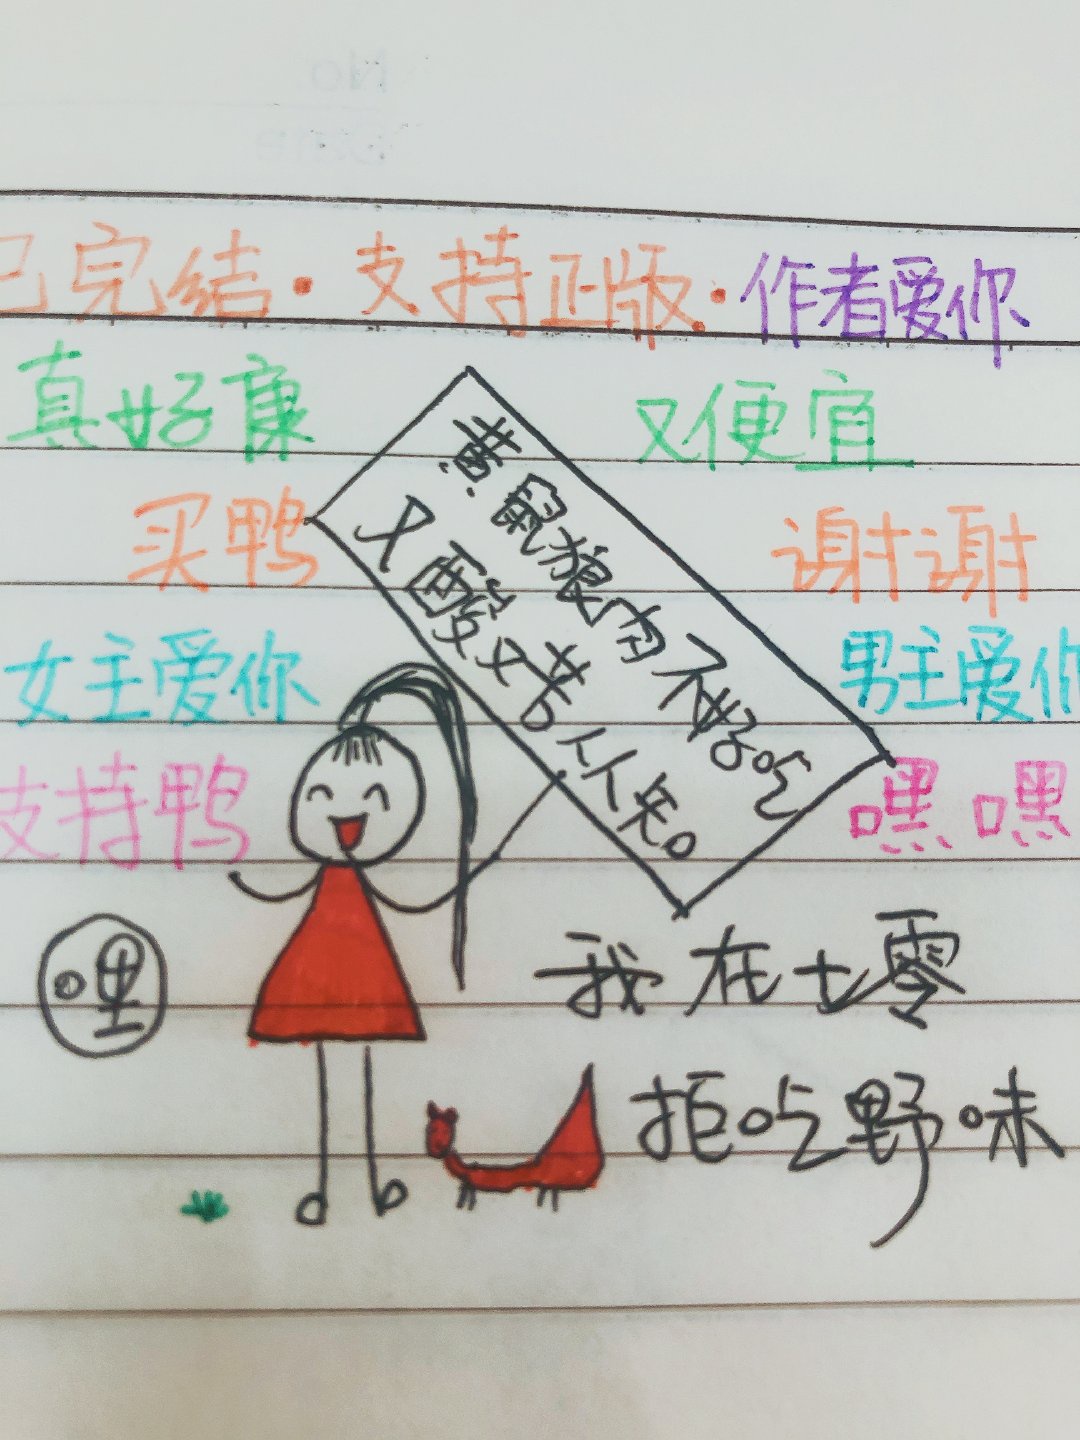 已完结·支持正版·作者爱你
真好康 又便宜
买鸭 谢谢
女主爱你 男主爱你
支持鸭 嘿嘿
黄鼠狼肉不好吃
又酸又苦人人知。
哩
我在七零
拒吃野味